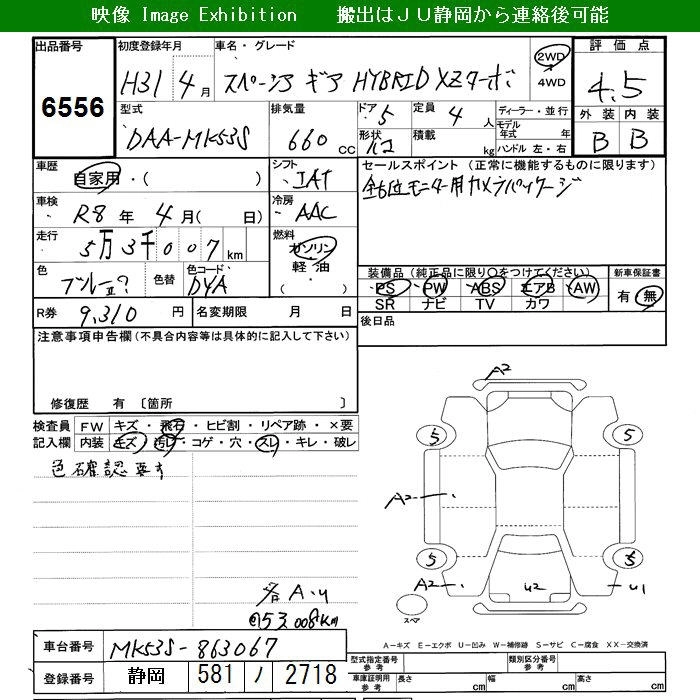 映像 Image Exhibition 搬出はJU静岡から連絡後可能
出品番号 6556
初度登録年月 H31 4月
車名・グレード スペーシア ギア HYBRID XZターボ
2WD 4WD
評価点 4.5
型式 DAA-MK53S
排気量 660 cc
ドア 5
定員 4 人
形状 ハコ
積載 kg
ディーラー・並行
モデル年式 年
ハンドル 左・右
外装 内装
B B
車歴 自家用・( )
シフト IAT
セールスポイント (正常に機能するものに限ります)
全方位モニター用カメラパッケージ
車検 R8年 4月( 日)
冷房 AAC
走行 5万3千007 km
燃料 ガソリン 軽油 ( )
色 色替
色コード DYA
装備品 (純正品に限り○をつけてください)
PS PW ABS エアB AW
SR ナビ TV カワ
新車保証書 有 無
R券 9,310 円
名変期限 月 日
後日品
注意事項申告欄 (不具合内容等は具体的に記入して下さい)
修復歴 有 〔箇所 〕
検査員記入欄
FW キズ・飛石・ヒビ割・リペア跡・×要
内装 キズ・汚レ・コゲ・穴・スレ・キレ・破レ
色確認要す
各A.U
53,008km
A2
5 5
A2
5 5
A2 U2 U1
スペア
A-キズ E-エクボ U-凹み W-補修跡 S-サビ C-腐食 XX-交換済
車台番号 MK53S-863067
登録番号 静岡 581 ノ 2718
型式指定番号 参考
類別区分番号 参考
車庫証明用 参考 長さ cm 幅 cm 高さ cm